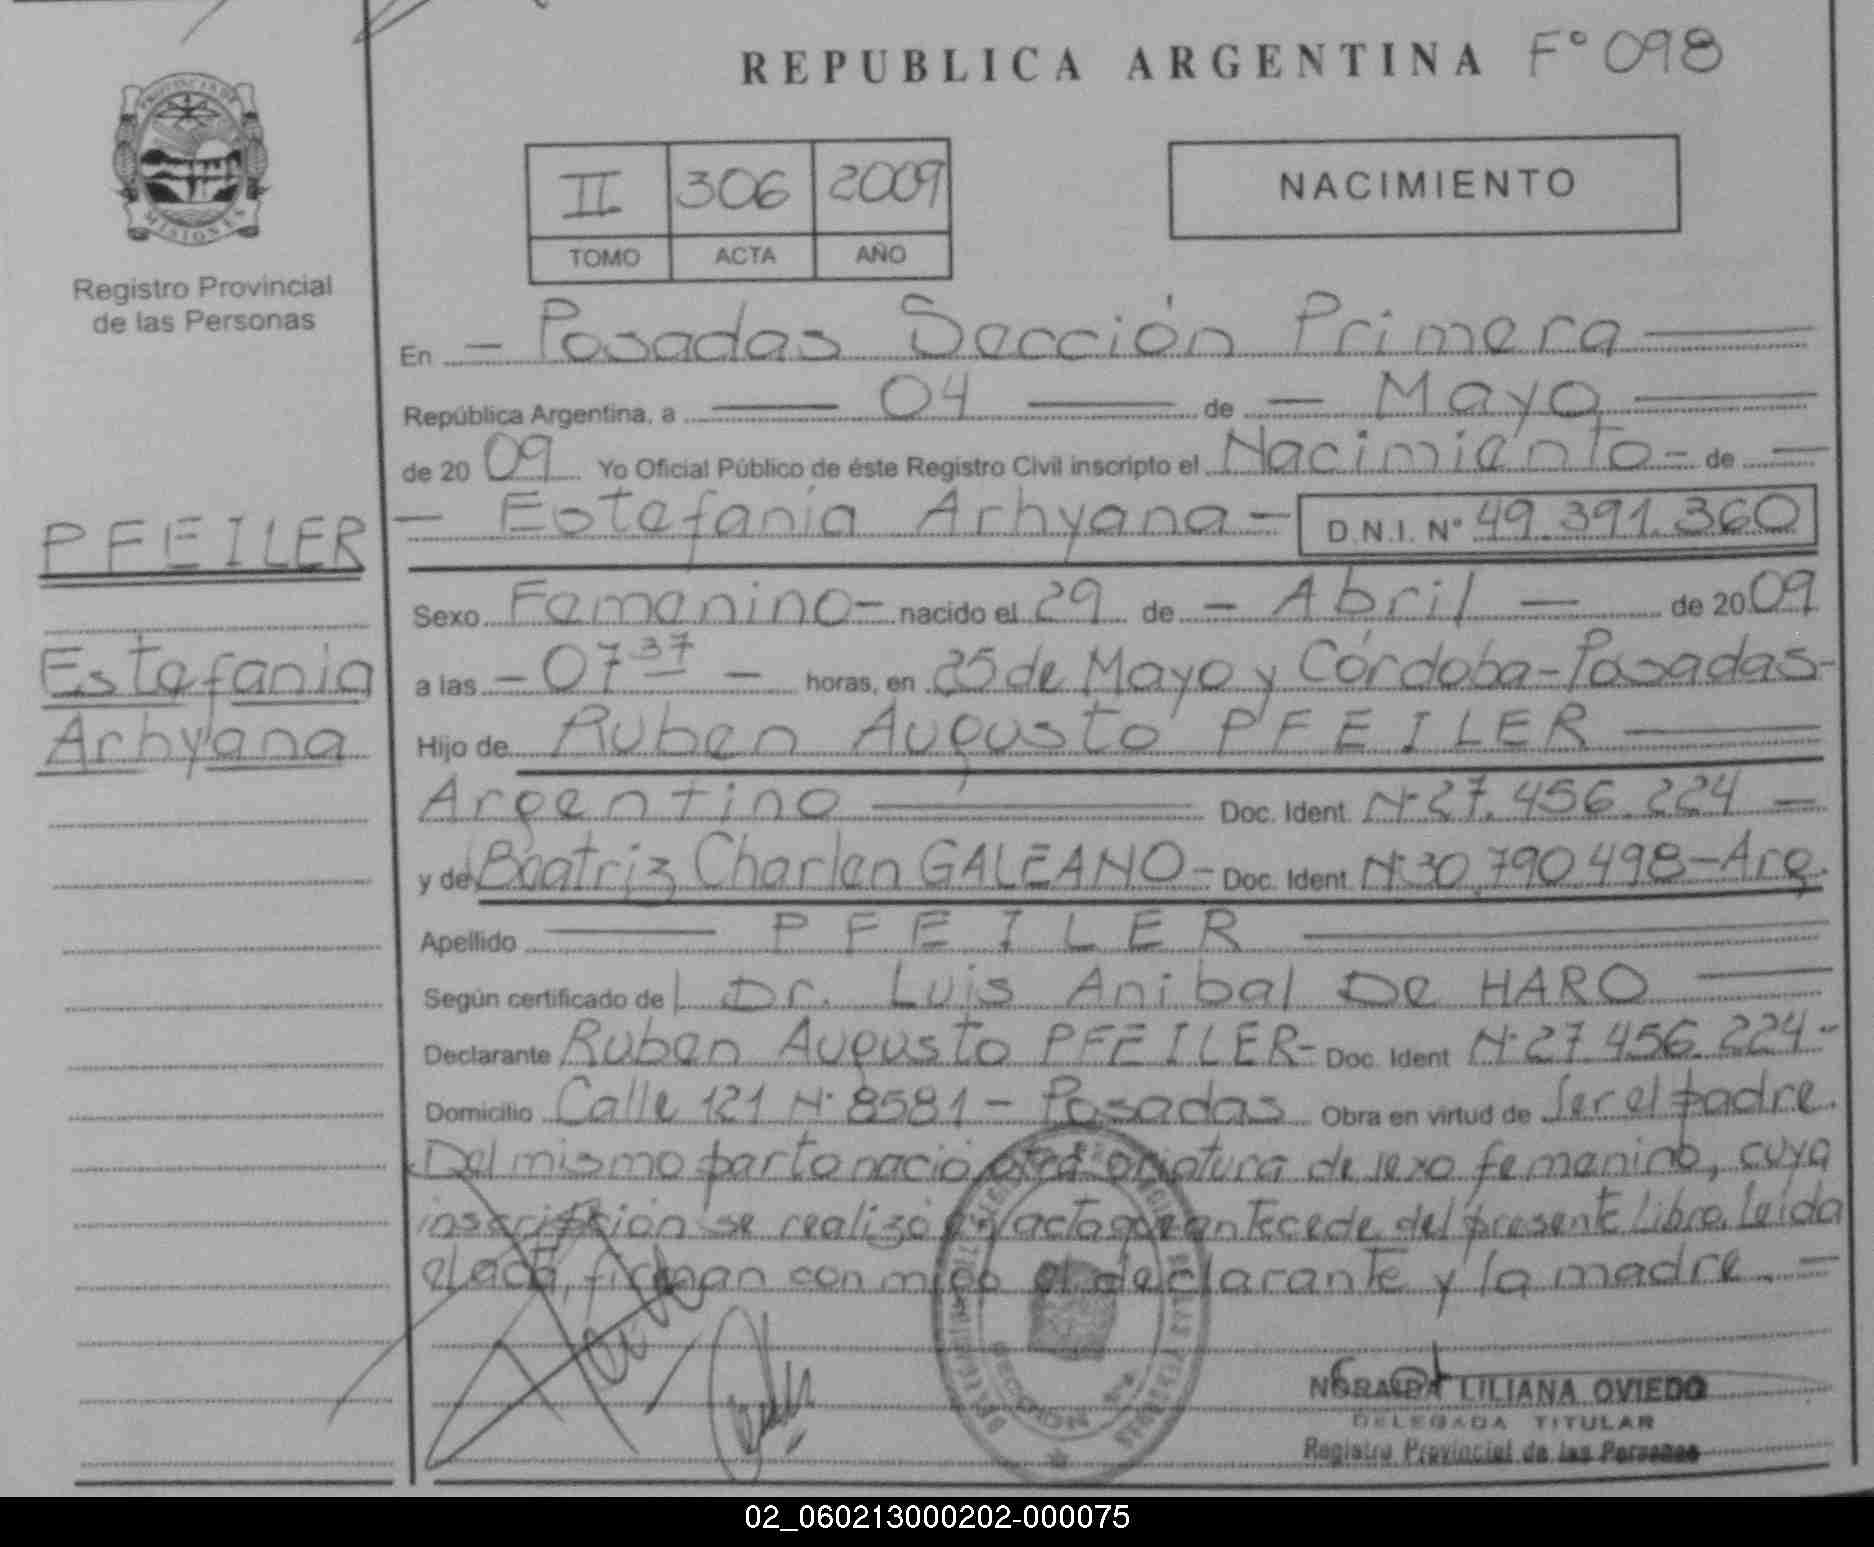 REPUBLICA ARGENTINA F° 098
PROVINCIA DE
MISIONES
Registro Provincial
de las Personas
II 306 2009
TOMO ACTA AÑO
NACIMIENTO
En - Posadas Sección Primera
República Argentina, a 04 de - Mayo
de 2009 Yo Oficial Público de éste Registro Civil inscripto el Nacimiento - de -
PFEILER
Estefania
Arhyana
- Estefania Arhyana - D.N.I. N° 49.391.360
Sexo Femenino - nacido el 29 de - Abril - de 2009
a las - 07 37 - horas, en 25 de Mayo y Córdoba - Posadas -
Hijo de Ruben Augusto PFEILER
Argentino Doc. Ident. N° 27.456.224 -
y de Beatriz Charlen GALEANO - Doc. Ident. N° 30.790.498 - Arg.
Apellido PFEILER
Según certificado del Dr. Luis Anibal De HARO
Declarante Ruben Augusto PFEILER - Doc. Ident N° 27.456.224 -
Domicilio Calle 121 N° 8581 - Posadas Obra en virtud de ser el padre.
Del mismo parto nacio otra criatura de sexo femenino, cuya
inscripcion se realizó en acta que antecede del presente Libro. Leida
el acta, firman con migo el declarante y la madre. -
NORAIDA LILIANA OVIEDO
DELEGADA TITULAR
Registro Provincial de las Personas
02_060213000202-000075